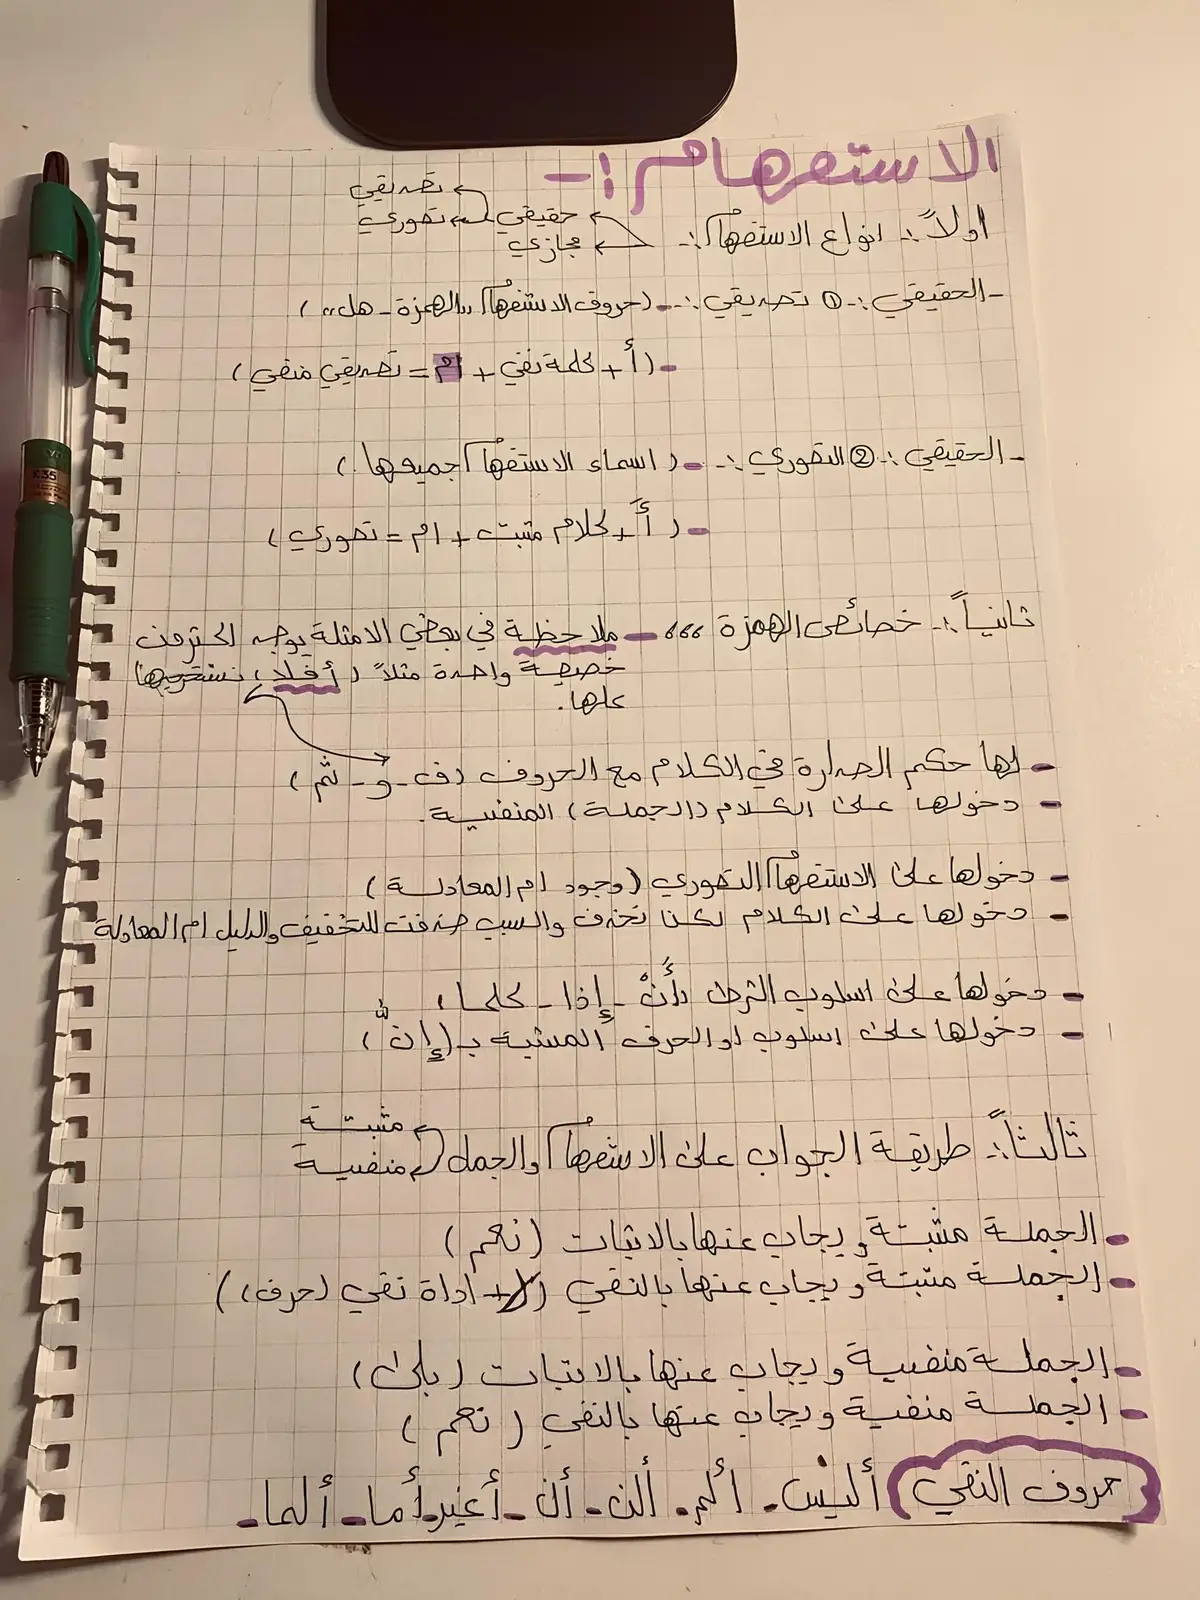 الاستفهام :-
اولاً :- انواع الاستفهام :-
حقيقي
تصديقي
تصوري
مجازي
- الحقيقي :- ① تصديقي :- - (حروف الاستفهام ,,الهمزة - هل,,)
- (أ + كلمة نفي + ام = تصديقي منفي)
- الحقيقي :- ② التصوري :- - (اسماء الاستفهام جميعها.)
- (أ + كلام مثبت + ام = تصوري)
ثانياً :- خصائص الهمزة ,,, - ملاحظة في بعض الامثلة يوجد اكثر من
خصيصة واحدة مثلاً (أفلا) نستخرجها
علها.
- لها حكم الصدارة في الكلام مع الحروف (ف - و - ثم)
- دخولها على الكلام (الجملة) المنفية.
- دخولها على الاستفهام التصوري (وجود ام المعادلة)
- دخولها على الكلام لكنا تحذف والسبب حذفت للتخفيف والدليل ام المعادلة
- دخولها على اسلوب الشرط (أأنْ - إذا - كلما)
- دخولها على اسلوب او الحرف المشبه بـ (إنّ)
ثالثاً :- طريقة الجواب على الاستفهام والجمل
مثبتة
منفية
- الجملة مثبتة ويجاب عنها بالاثبات (نعم)
- الجملة مثبتة ويجاب عنها بالنفي (لا + اداة نفي (حرف))
- الجملة منفية ويجاب عنها بالاثبات (بلى)
- الجملة منفية ويجاب عنها بالنفي (نعم)
حروف النفي أليس - ألم - ألن - أن - أغير - أما - ألما -